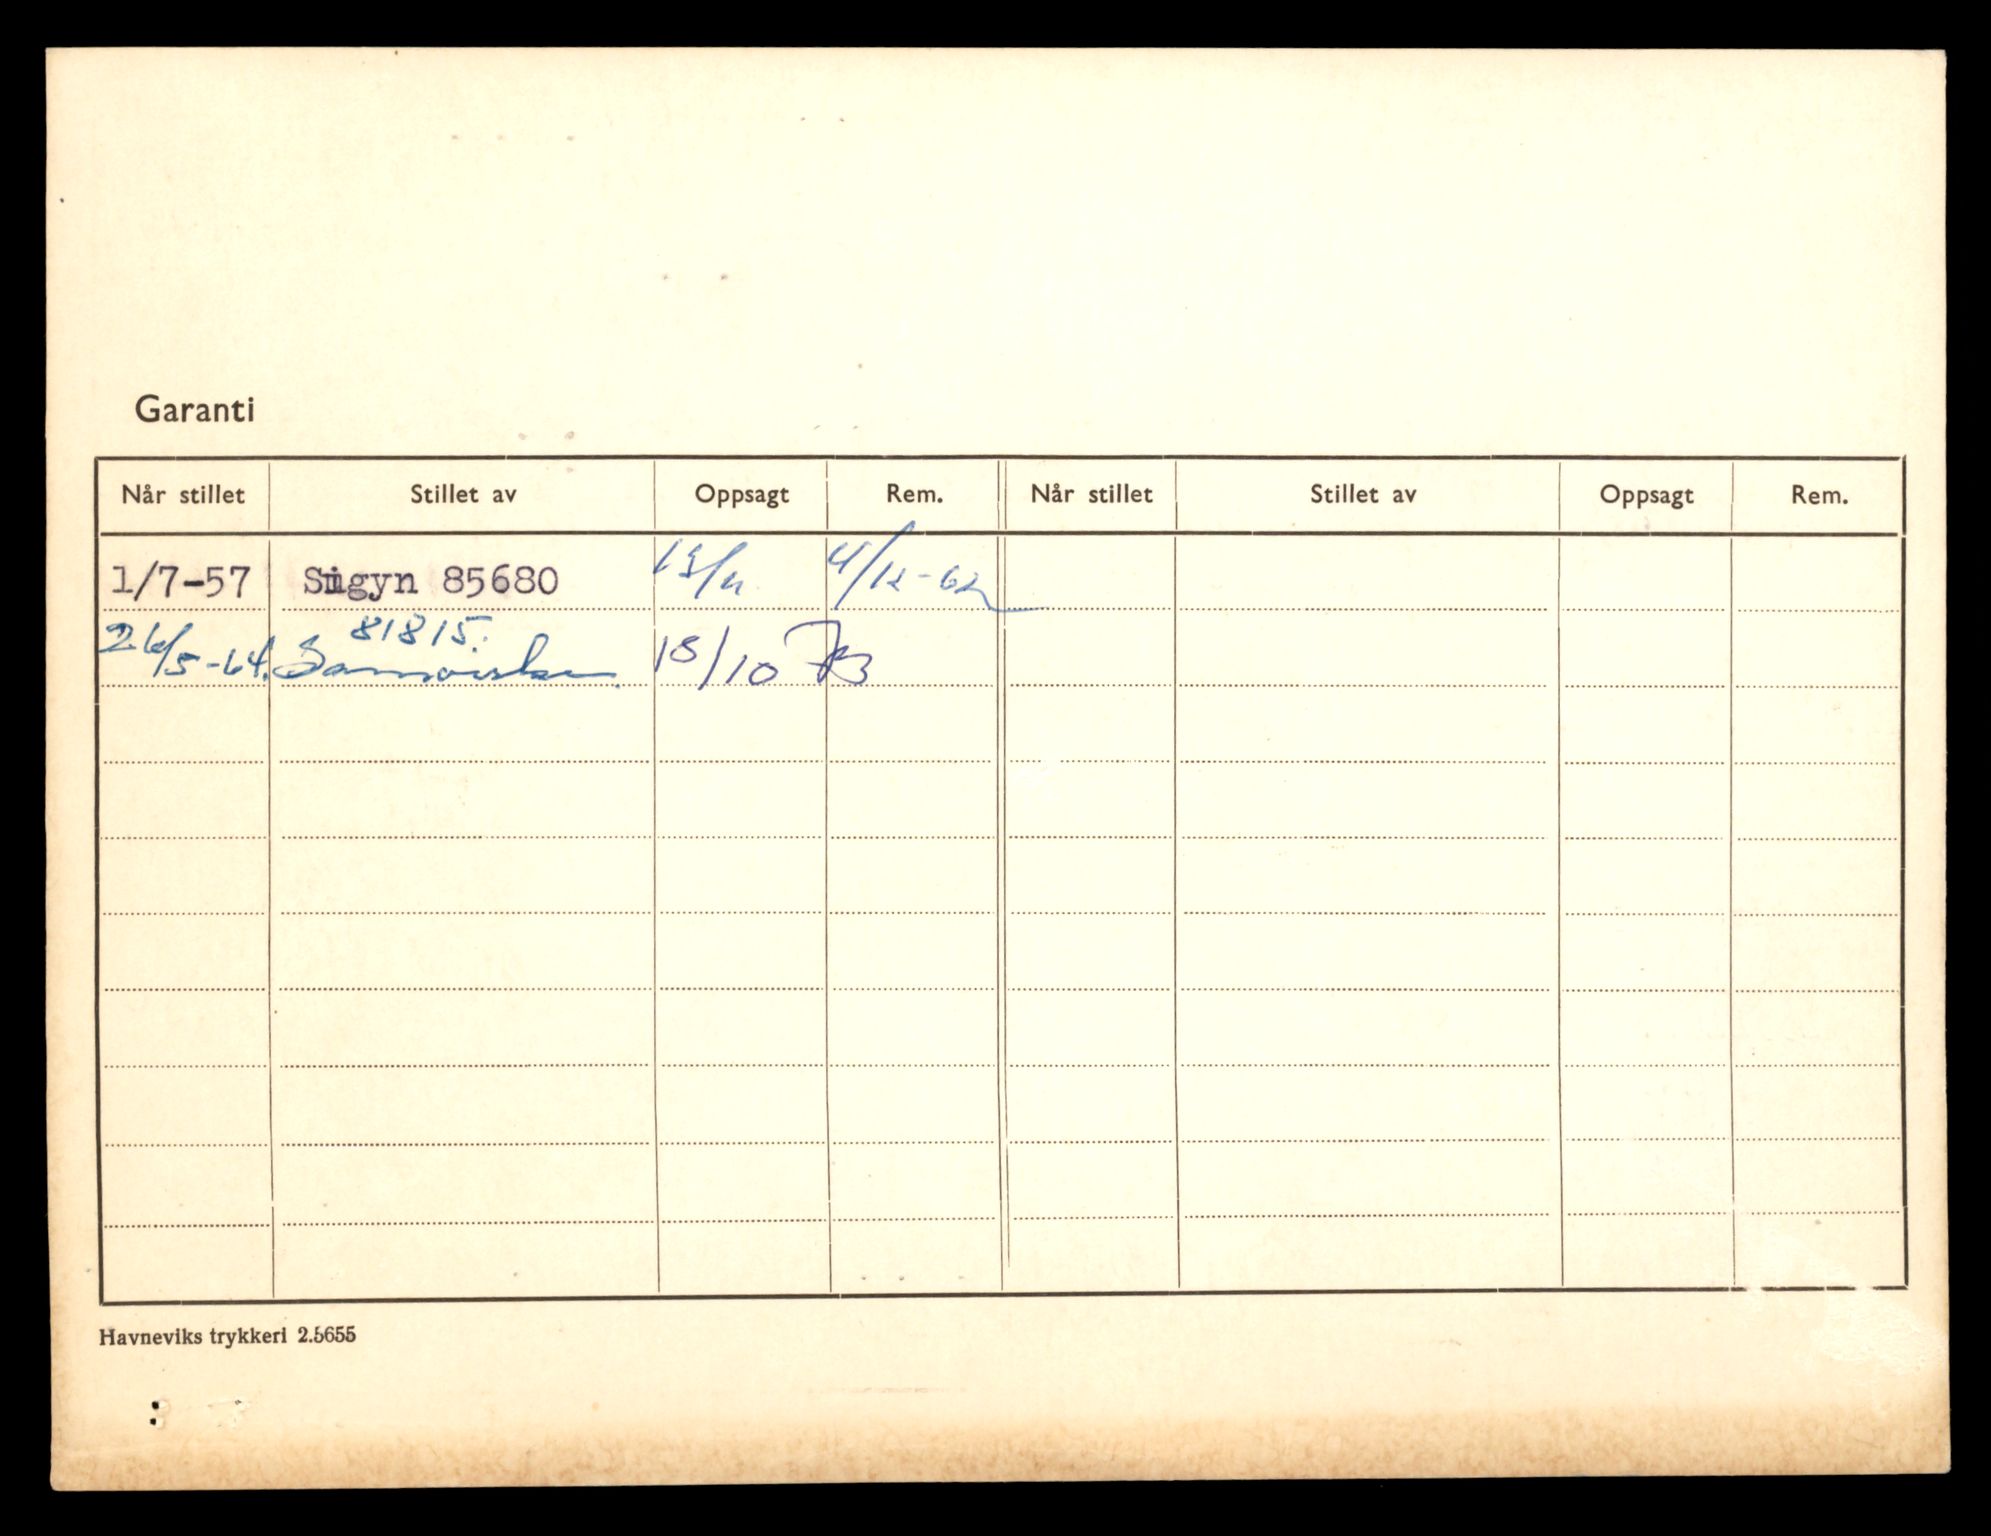 Garanti
Når stillet Stillet av Oppsagt Rem. Når stillet Stillet av Oppsagt Rem.
1/7-57 Sigyn 85680 15/11 4/12-62
81815.
26/5-64. Samvirke 18/10 73
Havneviks trykkeri 2.5655